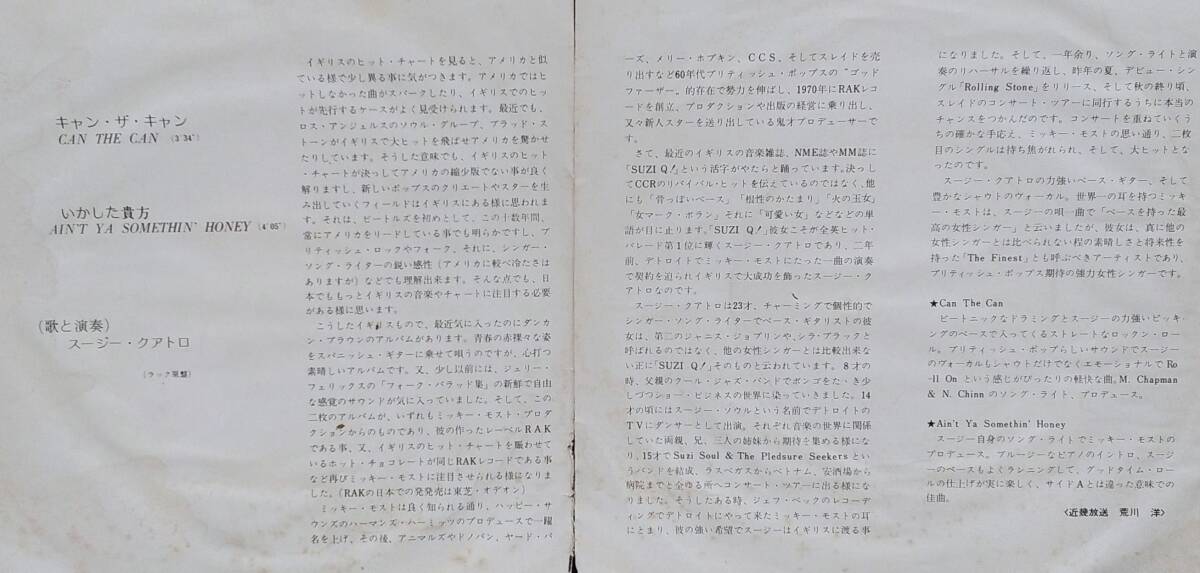 キャン・ザ・キャン
CAN THE CAN (3′34″)
いかした貴方
AIN'T YA SOMETHIN' HONEY (4′05″)
(歌と演奏)
スージー・クアトロ
(ラック原盤)
イギリスのヒット・チャートを見ると、アメリカと似
ている様で少し異る事に気がつきます。アメリカではヒ
ットしなかった曲がスパークしたり、イギリスでのヒッ
トが先行するケースがよく見受けられます。最近でも、
ロス・アンジェルスのソウル・グループ、ブラッド・ス
トーンがイギリスで大ヒットを飛ばせアメリカを驚かせ
たりしています。そうした意味でも、イギリスのヒット
・チャートが決っしてアメリカの縮少版でない事が良く
解りますし、新しいポップスのクリエートやスターを生
み出していくフィールドはイギリスにある様に思われま
す。それは、ビートルズを初めとして、この十数年間、
常にアメリカをリードしている事でも明らかですし、ブ
リティッシュ・ロックやフォーク、それに、シンガー・
ソング・ライターの鋭い感性(アメリカに較べ冷たさは
ありますが)などでも理解出来ます。そんな点でも、日
本でももっとイギリスの音楽やチャートに注目する必要
がある様に思います。
こうしたイギリスもので、最近気に入ったのにダンカ
ン・ブラウンのアルバムがあります。青春の赤裸々な姿
をスパニッシュ・ギターに乗せて唄うのですが、心打つ
素晴しいアルバムです。又、少し以前には、ジェリー・
フェリックスの「フォーク・バラッド集」の新鮮で自由
な感覚のサウンドが気に入っていました。そして、この
二枚のアルバムが、いずれもミッキー・モスト・プロダ
クションからのものであり、彼の作ったレーベルRAK
である事、又、イギリスのヒット・チャートを賑わせて
いるホット・チョコレートが同じRAKレコードである事
など再びミッキー・モストに注目させられる様になりま
した。(RAKの日本での発売は東芝・オデオン)
ミッキー・モストは良く知られる通り、ハッピー・サ
ウンズのハーマンズ・ハーミッツのプロデュースで一躍
名を上げ、その後、アニマルズやドノバン、ヤード・バ
ーズ、メリー・ホプキン、CCS、そしてスレイドを売
り出すなど60年代ブリティッシュ・ポップスの“ゴッド
ファーザー”的存在で勢力を伸ばし、1970年にRAKレコ
ードを創立、プロダクションや出版の経営に乗り出し、
又々新人スターを送り出している鬼才プロデューサーで
す。
さて、最近のイギリスの音楽雑誌、NME誌やMM誌に
「SUZI Q!」という活字がやたらと踊っています。決っし
てCCRのリバイバル・ヒットを伝えているのではなく、他
にも「骨っぽいベース」「根性のかたまり」「火の玉女」
「女マーク・ボラン」それに「可愛い女」などなどの単
語が目に止ります。「SUZI Q!」彼女こそが全英ヒット・
パレード第1位に輝くスージー・クアトロであり、二年
前、デトロイトでミッキー・モストにたった一曲の演奏
で契約を迫られイギリスで大成功を飾ったスージー・ク
アトロなのです。
スージー・クアトロは23才、チャーミングで個性的で
シンガー・ソング・ライターでベース・ギタリストの彼
女は、第二のジャニス・ジョプリンや、シラ・ブラックと
呼ばれるのではなく、他の女性シンガーとは比較出来な
い正に「SUZI Q!」そのものと云われています。8才の
時、父親のクール・ジャズ・バンドでボンゴをたゝき少
しづつショー・ビジネスの世界に染っていきました。14
才の頃にはスージー・ソウルという名前でデトロイトの
TVにダンサーとして出演。それぞれ音楽の世界に関係
していた両親、兄、三人の姉妹から期待を集める様にな
り、15才でSuzi Soul & The Pledsure Seekersとい
うバンドを結成、ラスベガスからベトナム、安酒場から
病院までと全ゆる所へコンサート・ツアーに出る様にな
りました。そうしたある時、ジェフ・ベックのレコーデ
ィングでデトロイトにやって来たミッキー・モストの耳
にとまり、彼の強い希望でスージーはイギリスに渡る事
になりました。そして、一年余り、ソング・ライトと演
奏のリハーサルを繰り返し、昨年の夏、デビュー・シン
グル「Rolling Stone」をリリース、そして秋の終り頃、
スレイドのコンサート・ツアーに同行するうちに本当の
チャンスをつかんだのです。コンサートを重ねていくう
ちの確かな手応え、ミッキー・モストの思い通り、二枚
目のシングルは持ち焦がれられ、そして、大ヒットとな
ったのです。
スージー・クアトロの力強いベース・ギター、そして
豊かなシャウトのヴォーカル。世界一の耳を持つミッキ
ー・モストは、スージーの唄一曲で「ベースを持った最
高の女性シンガー」と云いましたが、彼女は、真に他の
女性シンガーとは比べられない程の素晴しさと将来性を
持った「The Finest」とも呼ぶべきアーティストであり、
ブリティッシュ・ポップス期待の強力女性シンガーです。
★Can The Can
ビートニックなドラミングとスージーの力強いピッキ
ングのベースで入ってくるストレートなロックン・ロー
ル。ブリティッシュ・ポップらしいサウンドでスージー
のヴォーカルもシャウトだけでなくエモーショナルでRo
-ll Onという感じがぴったりの軽快な曲。M. Chapman
& N. Chinnのソング・ライト、プロデュース。
★Ain't Ya Somethin' Honey
スージー自身のソング・ライトでミッキー・モストの
プロデュース。ブルージーなピアノのイントロ、スージ
ーのベースもよくランニングして、グッドタイム・ロー
ルの仕上げが実に楽しく、サイドAとは違った意味での
佳曲。
〈近畿放送 荒川 洋〉